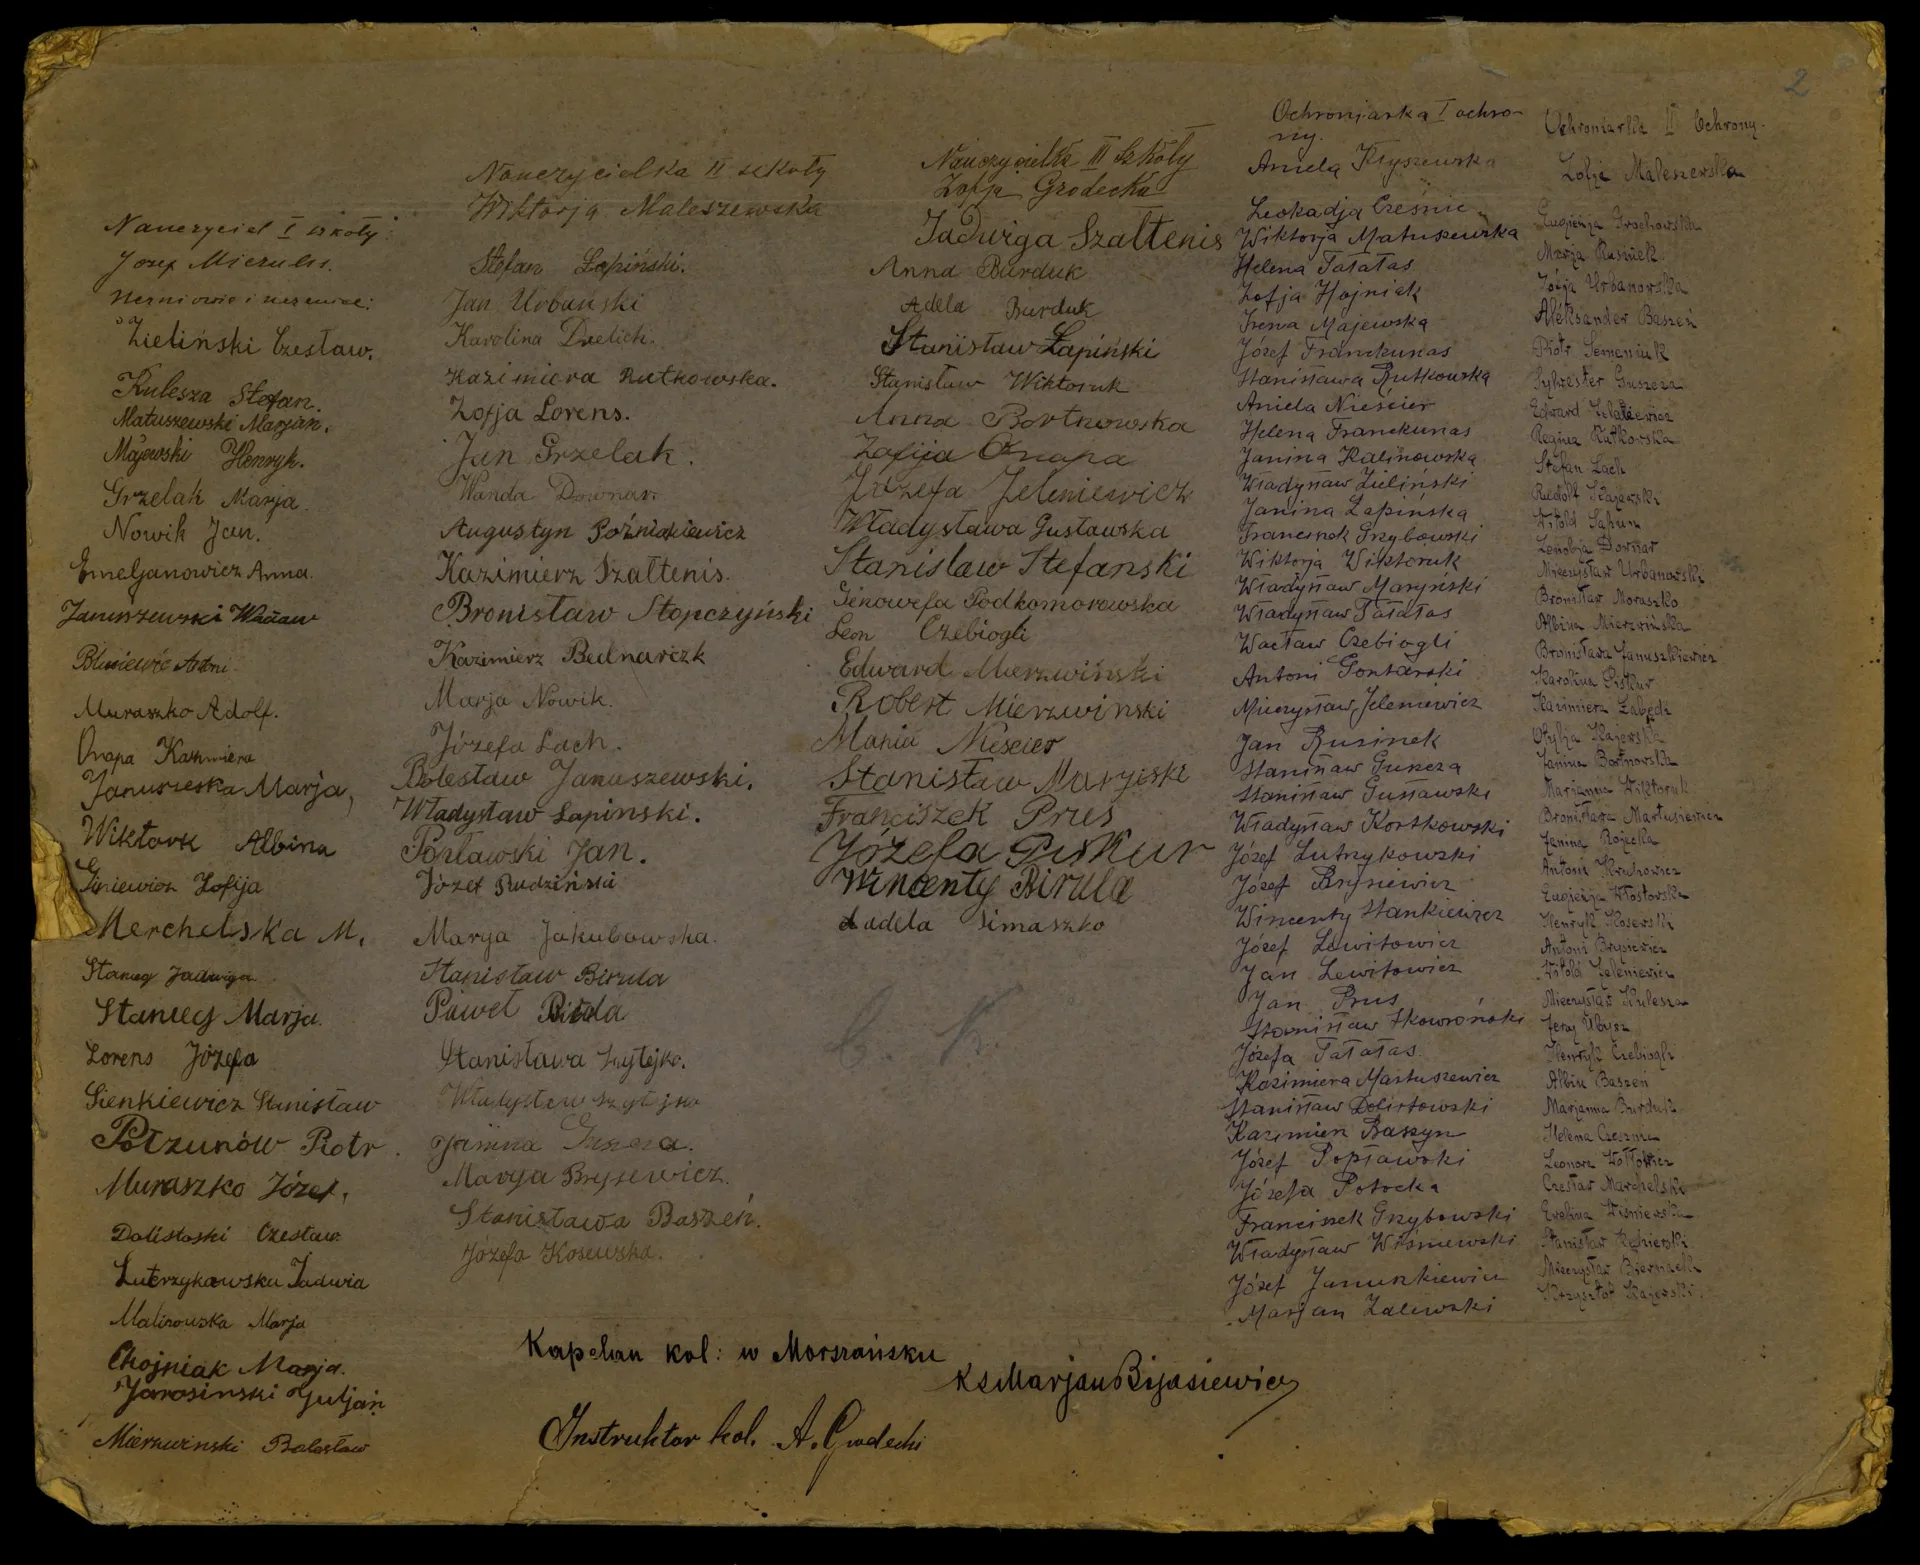 2
Nauczyciel I szkoły:
Józef Mierzuł.
Zieliński Czesław.
Kulesza Stefan.
Matuszewski Marjan.
Majewski Henryk.
Grzelak Marja.
Nowik Jan.
Emeljanowicz Anna.
Januszewski Wacław
Muraszko Adolf.
Onapa Kazimiera
Januszeska Marja,
Wiktoruk Albina
Zofija
Merchelska M.
Staniey Jadwiga.
Staniey Marja.
Lorens Józefa
Sienkiewicz Stanisław
Połzunów Piotr.
Muraszko Józef.
Dolistoski Czesław.
Luterzykowska Jadwia
Malinowska Marja
Chojniak Marja.
Jarosinski Juljan
Mierzwinski Bolesław
Nauczycielka II szkoły
Wiktorja Maleszewska
Stefan Łapiński.
Jan Urbański
Karolina Drelich.
Kazimiera Rutkowska.
Zofja Lorens.
Jan Grzelak.
Wanda Downar.
Augustyn Poźniakiewicz
Kazimierz Szałtenis.
Bronisław Stopczyński
Kazimierz Bednarczk
Marja Nowik.
Józefa Lach.
Bolesław Januszewski.
Władysław Łapinski.
Popławski Jan.
Józef Rudziński
Marya Jakubowska.
Stanisław Birula
Paweł Birula
Stanisława Szytejko.
Władysław Szytejko
Janina Guszcza.
Marya Brysewicz.
Stanisława Baszeń.
Józefa Kosewska.
Nauczycielka III Szkoły
Zofja Grodecka
Jadwiga Szałtenis
Anna Burduk
Adela Burduk
Stanisław Łapiński
Stanisław Wiktoruk
Anna Bortnowska
Zofija Onapa
Józefa Jeleniewicz
Władysława Gustawska
Stanislaw Stefanski
Genowefa Podkomorowska
Leon Czebiogli
Edward Mierzwiński
Robert Mierzwinski
Mania Nieścier
Stanisław Maryński
Franciszek Prus
Józefa Piskur
Wincenty Birula
Ladela Simaszko
C. K.
Ochroniarka I ochro-
ny.
Aniela Kłyszewska
Leokadja Cześnic
Wiktorja Matuszewska
Helena Tatałas
Zofja Hojniak
Irena Majewska
Józef Franckunas
Stanisława Rutkowska
Aniela Nieścier
Helena Franckunas
Janina Kalinowska
Władysław Zieliński
Janina Łapińska
Franciszek Grzybowski
Wiktorja Wiktoruk
Władysław Maryński
Władysław Tatałas
Wacław Czebiogli
Antoni Gontarski
Mieczysław Jeleniewicz
Jan Rusinek
Stanisław Guszcza
Stanisław Gustawski
Władysław Kostkowski
Józef Lutrzykowski
Józef Brysiewicz
Wincenty Stankiewicz
Józef Lewitowicz
Jan Lewitowicz
Jan Prus
Stanisław Skowroński
Józefa Tatałas.
Kazimiera Martuszewicz
Stanisław Dolistowski
Kazimierz Baszyn
Józef Popławski
Józefa Potocka
Franciszek Grzybowski
Władysław Wiśniewski
Józef Januszkiewicz
Marjan Zalewski
Ochroniarka II Ochrony.
Zofja Maleszewska
Eugienja Grochowska
Marja Rusinek
Zofja Urbanowska
Aleksander Baszeń
Piotr Semeniuk
Sylwester Guszcza
Edward
Regina Rutkowska
Stefan Lach
Rudolf Kajewski
Witold Sapun
Zenobja Downar
Mieczysław Urbanowski
Bronisław Moraszko
Albina Mierzwińska
Bronisława Januszkiewicz
Karolina Piskur
Kazimierz Łabędź
Otylja Kajewska
Janina Bortnowska
Marjanna Wiktoruk
Bronisława Martusiewicz
Janina Rojecka
Antoni
Eugienja Włostowska
Henryk Kosewski
Antoni Brysiewicz
Witold Jeleniewicz
Mieczysław Kulesza
Jerzy Ubysz
Henryk Czebiogli
Albin Baszeń
Marjanna Burduk
Helena Czesznia
Leonarz Wołłowicz
Czesław Marchelski
Ewelina Wiśniewska
Stanisław
Mieczysław Biernacki
Krzysztof Kajewski.
Kapelan kol: w Morszańsku
Ks Marjan Bijasiewicz
Instruktor kol. A. Grodecki